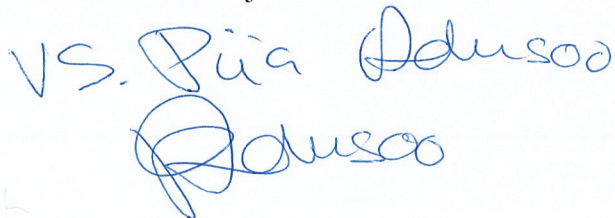 VS. Piia Adusoo
Adusoo